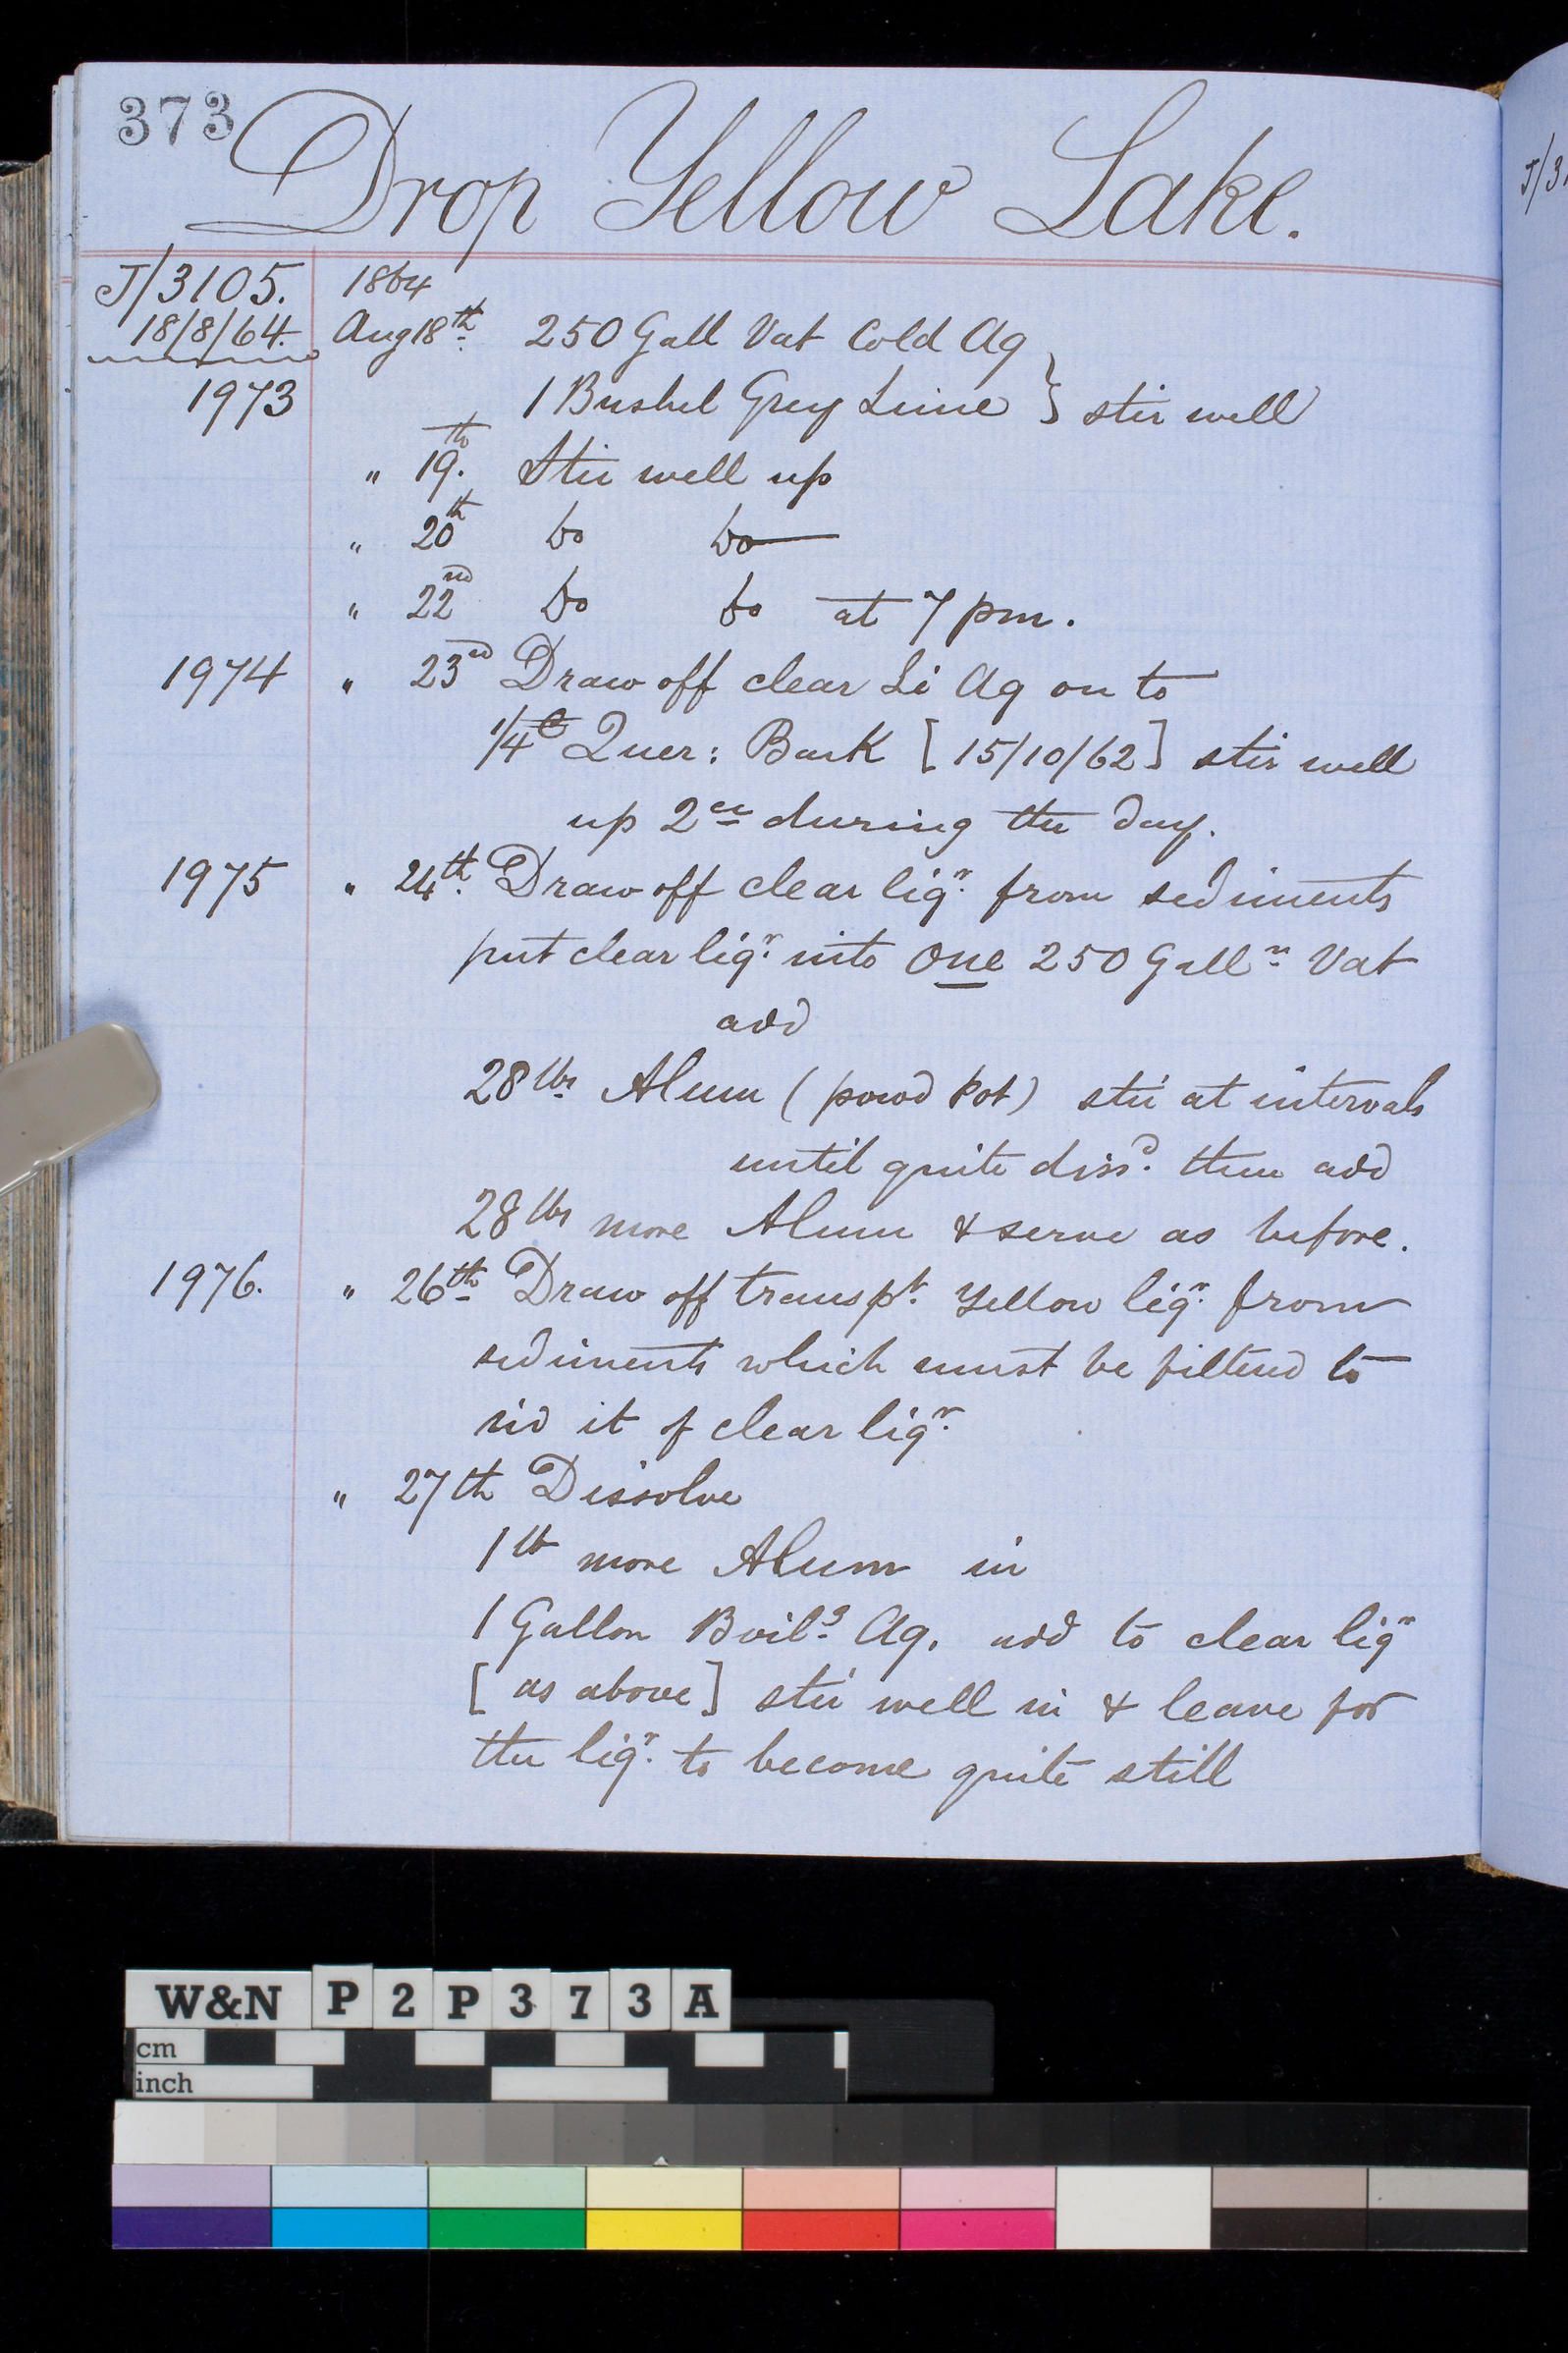 373
Drop Yellow Lake.
J/3105. 1864
18/8/64. Aug 18th 250 Gall Vat Cold Aq
1973 1 Bushel Grey Lime } stir well
" 19th. Stir well up
" 20th Do Do
" 22nd Do Do at 7 pm.
1974 " 23rd Draw off clear Li Aq on to
1/4 C Quer: Bark [15/10/62] stir well
up 2ce during the day.
1975 " 24th. Draw off clear liqr. from sediments
put clear liqr. into One 250 Galln Vat
add
28 lbs Alum (powd Pot) stir at intervals
until quite dissd. then add
28 lbs more Alum & serve as before.
1976. " 26th Draw off transpt. Yellow liqr. from
sediments which must be filterd to
rid it of clear liqr.
" 27th Dissolve
1 lb more Alum in
1 Gallon Boilg. Aq. add to clear liqr
[as above] stir well in & leave for
the liqr. to become quite still
J/3
W&N P2P373A
cm
inch